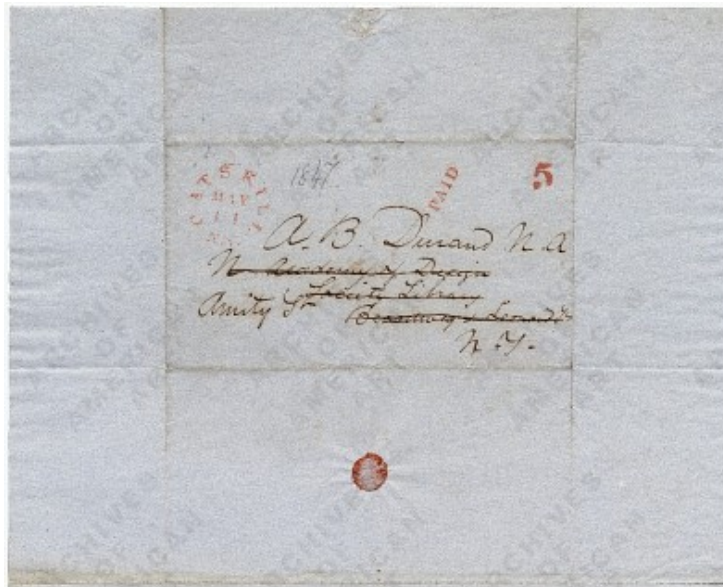 CATSKILL
MAY
11
N.Y.
1847.
PAID
5
A. B. Durand N. A
N. Academy of Design
Society Library
Amity St Broadway & Leonard St
N. Y.
ARCHIVES
OF
AMERICAN
ART